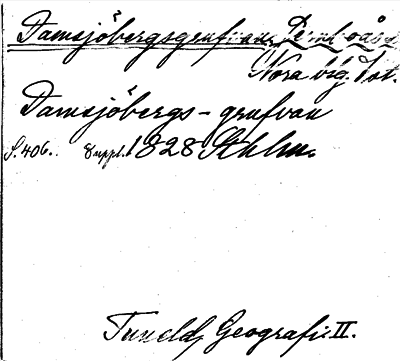 Damsjöbergsgrufvan, Lindesås
Nora bsg. Vst.
Damsjöbergs-grufvan
S. 406. Suppl. 1828 Sthlm.
Tuneld, Geografi II.